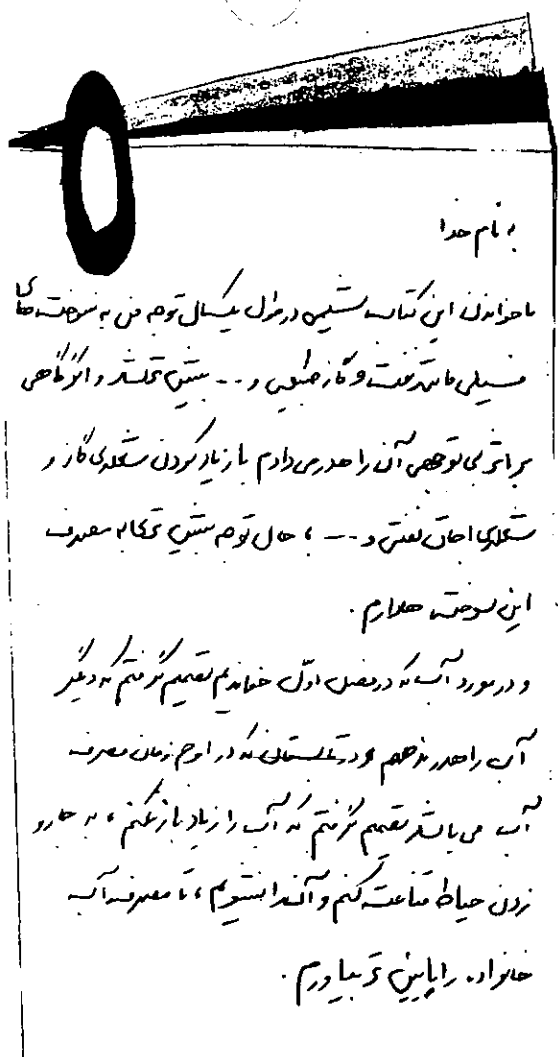 به نام خدا
با خواندن این کتاب شیمی در طول یکسال توجه من به سوخت های
فسیلی مانند نفت و گاز طبیعی و -- بیشتر شد و اگر گاهی
بر اثر بی توجهی آن را هدر می دادم با زیاد کردن شعله‌ی گاز و
شعله‌ی اجاق نفتی و --- ، حال توجه بیشتری به مصرف
این سوخت ها دارم .
و در مورد آب که در فصل اول خواندیم تصمیم گرفتم که دیگر
آب را هدر ندهم و در تابستان که در اوج زمان مصرف
آب می باشد تصمیم گرفتم که آب را زیاد باز نکنم ، به جارو
زدن حیاط قناعت کنم و آنرا نشویم ، تا مصرف آب
خانواده را پایین تر بیاورم .